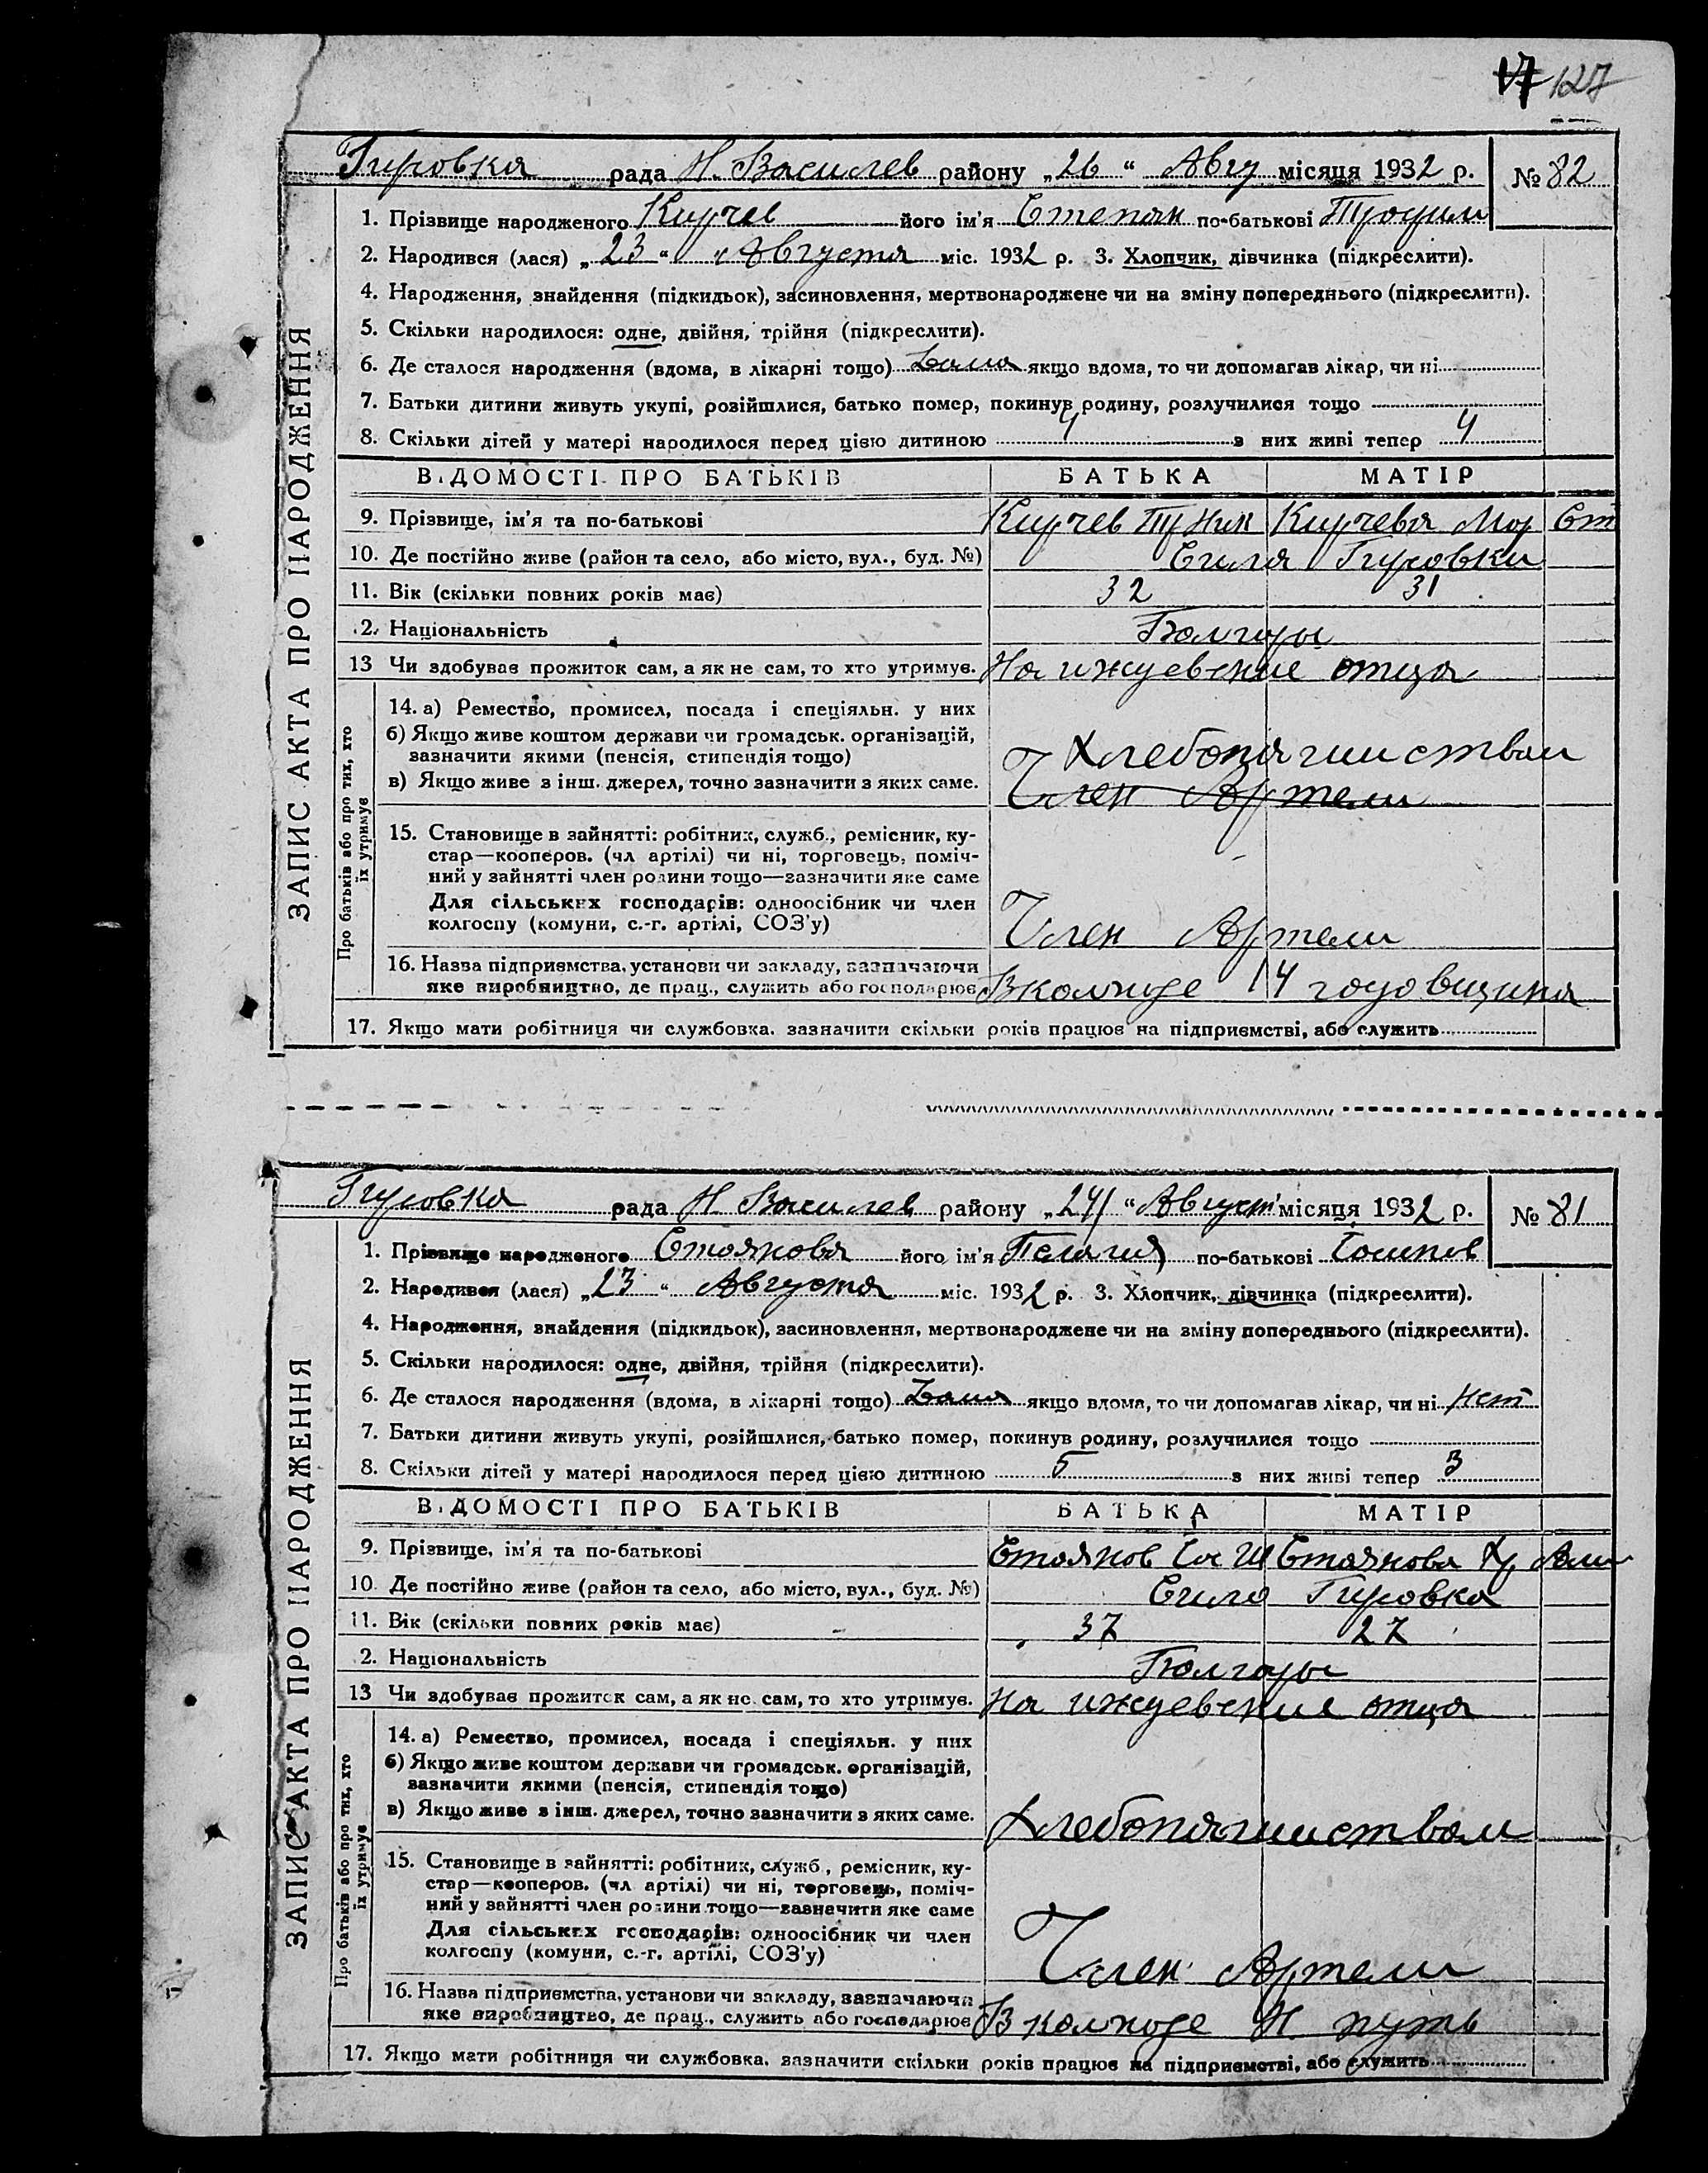 17 127
Гировка рада Н. Василев району „26“ Авгу місяця 1932 р. № 82
ЗАПИС АКТА ПРО НАРОДЖЕННЯ
1. Прізвище народженого Кирчев його ім'я Степан по-батькові Трофим
2. Народився (лася) „23“ Августа міс. 1932 р. 3. Хлопчик, дівчинка (підкреслити).
4. Народження, знайдення (підкидьок), засиновлення, мертвонароджене чи на зміну попереднього (підкреслити).
5. Скільки народилося: одне, двійня, трійня (підкреслити).
6. Де сталося народження (вдома, в лікарні тощо) Дома якщо вдома, то чи допомагав лікар, чи ні
7. Батьки дитини живуть укупі, розійшлися, батько помер, покинув родину, розлучилися тощо
8. Скільки дітей у матері народилося перед цією дитиною 4 з них живі тепер 4
ВІДОМОСТІ ПРО БАТЬКІВ БАТЬКА МАТІР
9. Прізвище, ім'я та по-батькові Кирчев Тр Ник Кирчева Мар Ст
10. Де постійно живе (район та село, або місто, вул., буд. №) Сила Гировки
11. Вік (скільки повних років має) 32 31
.2. Національність Болгары
13 Чи здобуває прожиток сам, а як не сам, то хто утримує. На ижуевение отца
Про батьків або про тих, хто їх утримує
14. а) Ремество, промисел, посада і спеціяльн. у них
б) Якщо живе коштом держави чи громадськ. організацій,
зазначити якими (пенсія, стипендія тощо)
в) Якщо живе з інш. джерел, точно зазначити з яких саме.
Хлебопашиством
Член Артели
15. Становище в зайнятті: робітник, служб., ремісник, ку-
стар—кооперов. (чл артілі) чи ні, торговець, поміч-
ний у зайнятті член родини тощо—зазначити яке саме
Для сільських господарів: одноосібник чи член
колгоспу (комуни, с.-г. артілі, СОЗ'у)
Член Артели
16. Назва підприємства, установи чи закладу, зазначаючи
яке виробництво, де прац., служить або господарює В колходе 14 годовщина
17. Якщо мати робітниця чи службовка, зазначити скільки років працює на підприємстві, або служить
Гировка рада Н. Василев району „24“ Август місяця 1932 р. № 81
ЗАПИС АКТА ПРО НАРОДЖЕННЯ
1. Прізвище народженого Стоянова його ім'я Пелагия по-батькові
2. Народився (лася) „23“ Августа міс. 1932 р. 3. Хлопчик, дівчинка (підкреслити).
4. Народження, знайдення (підкидьок), засиновлення, мертвонароджене чи на зміну попереднього (підкреслити).
5. Скільки народилося: одне, двійня, трійня (підкреслити).
6. Де сталося народження (вдома, в лікарні тощо) Дома якщо вдома, то чи допомагав лікар, чи ні Нет
7. Батьки дитини живуть укупі, розійшлися, батько помер, покинув родину, розлучилися тощо
8. Скільки дітей у матері народилося перед цією дитиною 5 з них живі тепер 3
ВІДОМОСТІ ПРО БАТЬКІВ БАТЬКА МАТІР
9. Прізвище, ім'я та по-батькові Стоянов Стоянова
10. Де постійно живе (район та село, або місто, вул., буд. №) Сило Гировка
11. Вік (скільки повних років має) 37 27
2. Національність Болгары
13 Чи здобуває прожиток сам, а як не сам, то хто утримує. На ижуевение отца
Про батьків або про тих, хто їх утримує
14. а) Ремество, промисел, посада і спеціяльн. у них
б) Якщо живе коштом держави чи громадськ. організацій,
зазначити якими (пенсія, стипендія тощо)
в) Якщо живе з інш. джерел, точно зазначити з яких саме.
Хлебопашиством
15. Становище в зайнятті: робітник, служб., ремісник, ку-
стар—кооперов. (чл артілі) чи ні, торговець, поміч-
ний у зайнятті член родини тощо—зазначити яке саме
Для сільських господарів: одноосібник чи член
колгоспу (комуни, с.-г. артілі, СОЗ'у)
Член Артели
16. Назва підприємства, установи чи закладу, зазначаючи
яке виробництво, де прац., служить або господарює В колходе Н. путь
17. Якщо мати робітниця чи службовка, зазначити скільки років працює на підприємстві, або служить